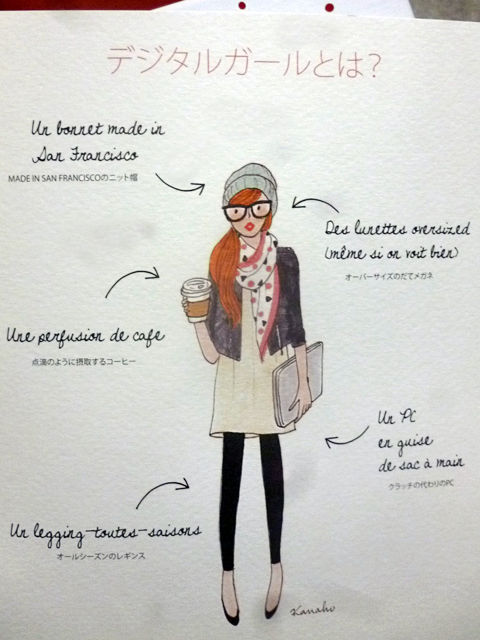 デジタルガールとは?
Un bonnet made in
San Francisco
MADE IN SAN FRANCISCOのニット帽
Des lunettes oversized
(même si on voit bien)
オーバーサイズのだてメガネ
Une perfusion de cafe
点滴のように摂取するコーヒー
Un PC
en guise
de sac à main
クラッチの代わりのPC
Un legging-toutes-saisons
オールシーズンのレギンス
Kanaho